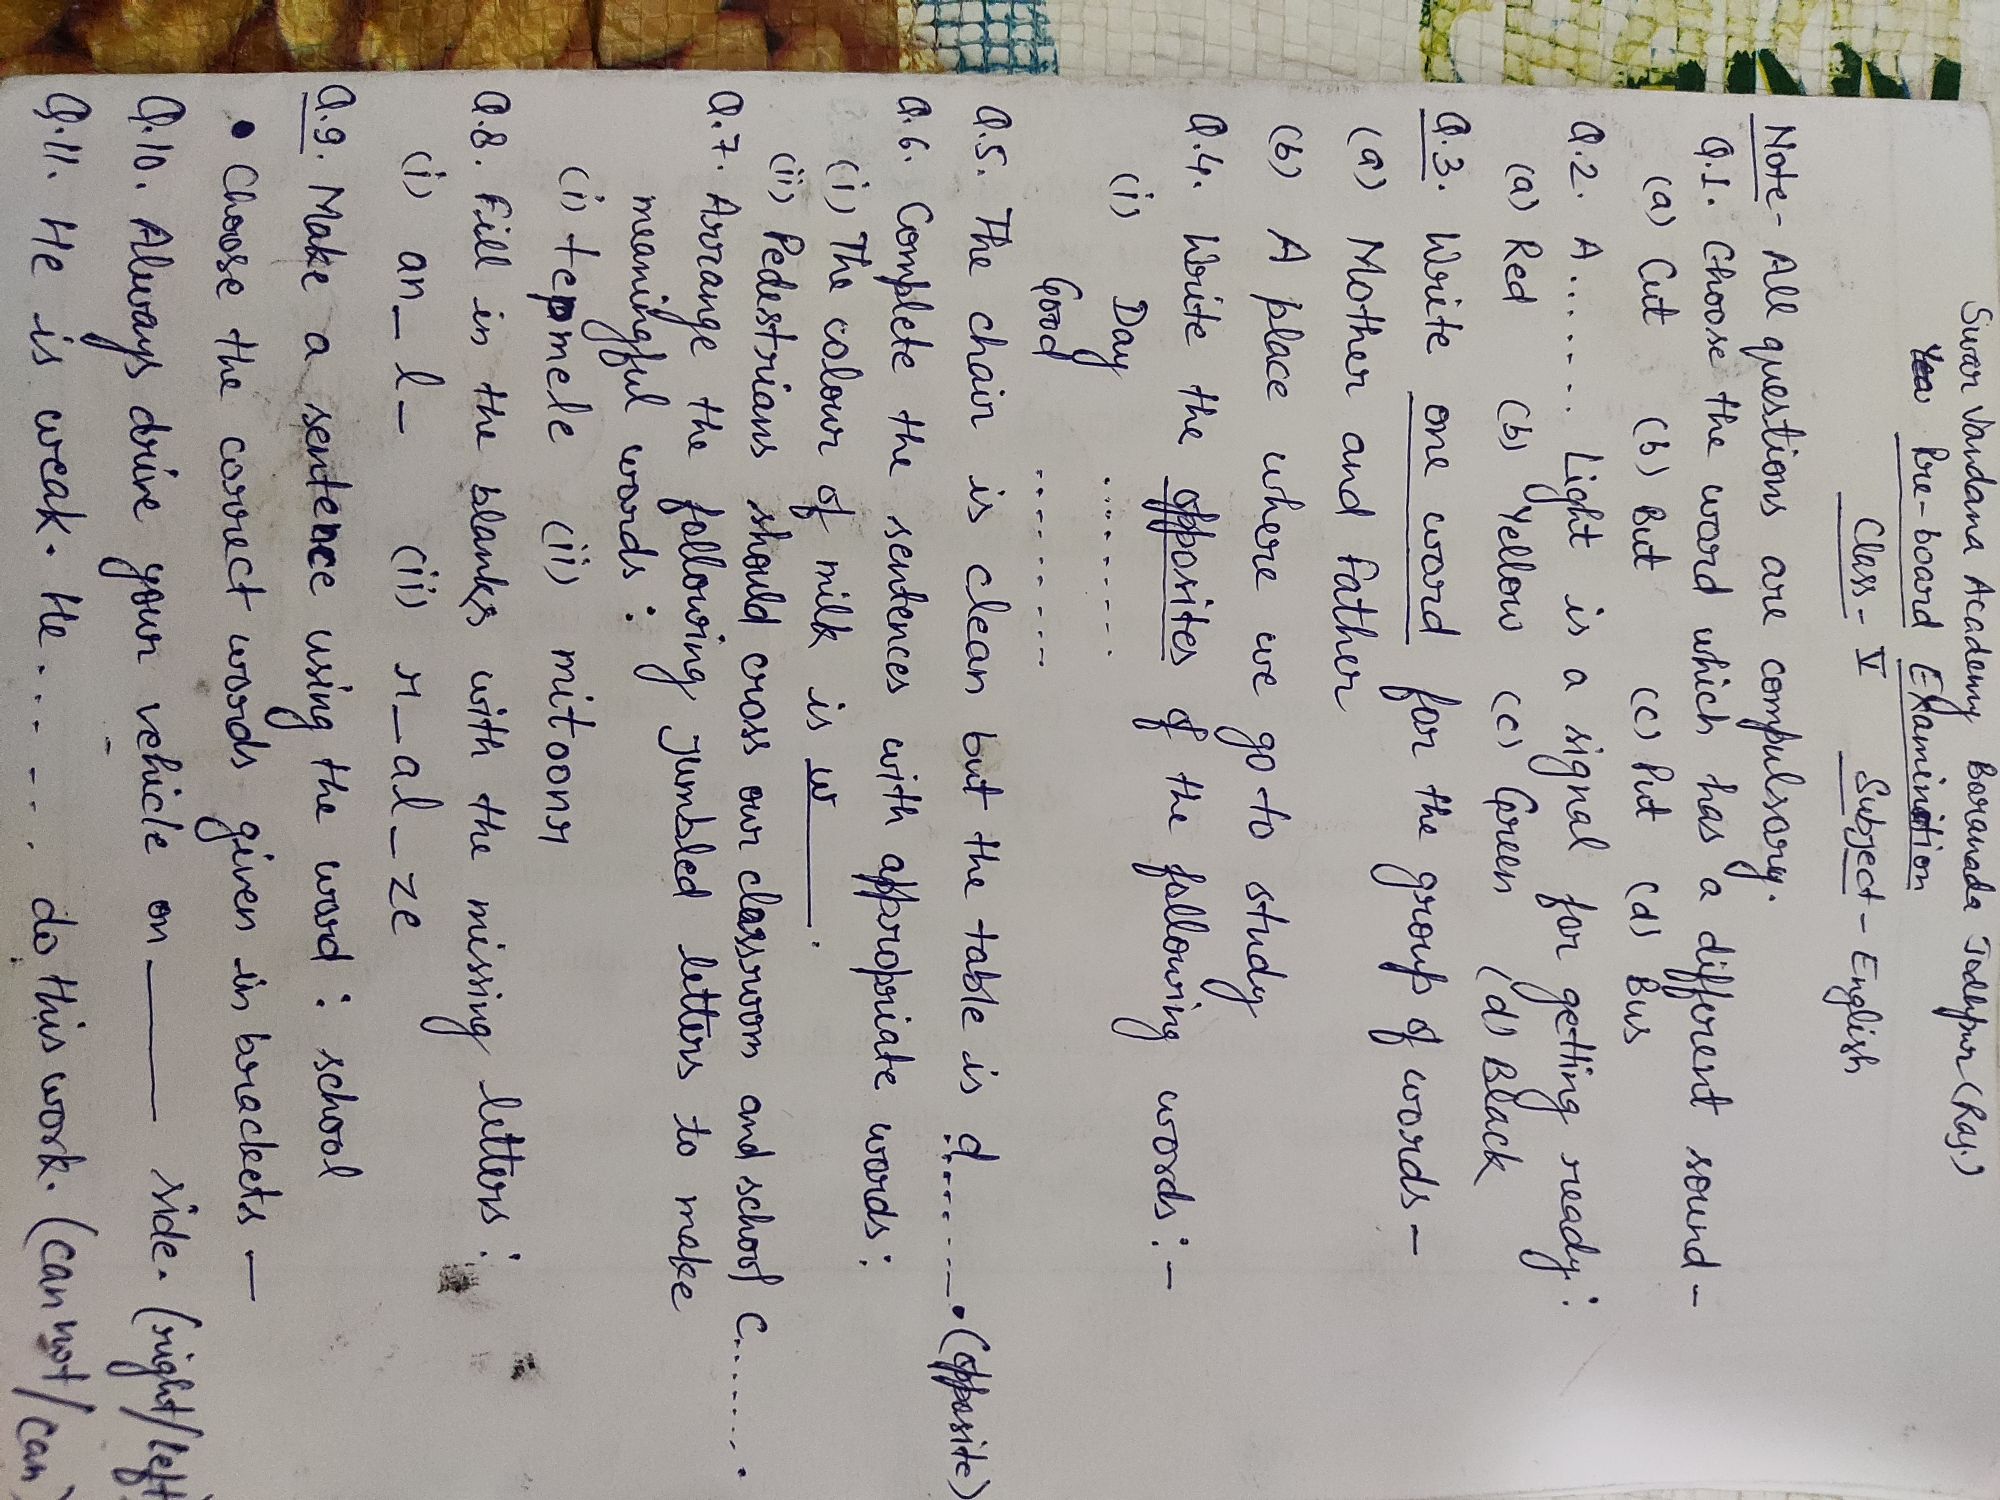 Swar Vandana Academy Boranada Jodhpur (Raj.)
Pre-board Examination
Class - V Subject - English
Note - All questions are compulsory.
Q.1. Choose the word which has a different sound -
(a) Cut (b) But (c) Put (d) Bus
Q.2. A....... Light is a signal for getting ready:
(a) Red (b) Yellow (c) Green (d) Black
Q.3. Write one word for the group of words -
(a) Mother and Father
(b) A place where we go to study
Q.4. Write the opposites of the following words :-
(i) Day .........
Good .........
Q.5. The chair is clean but the table is d......... (opposite)
Q.6. Complete the sentences with appropriate words:
(i) The colour of milk is w______.
(ii) Pedestrians should cross our classroom and school c.......
Q.7. Arrange the following jumbled letters to make
meaningful words :
(i) tepmele (ii) mitoonr
Q.8. Fill in the blanks with the missing letters :
(i) an_l_ (ii) r_al_ze
Q.9. Make a sentence using the word : school
• Choose the correct words given in brackets -
Q.10. Always drive your vehicle on ______ side. (right/left)
Q.11. He is weak. He....... do this work. (can not/can)